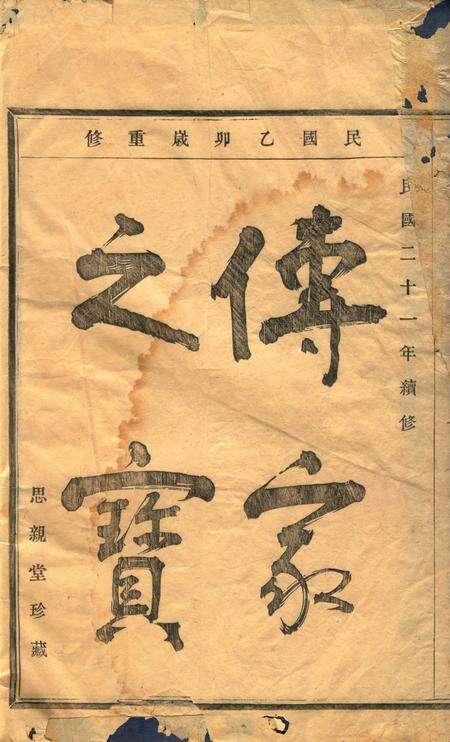 民國乙卯歲重修
民國二十一年續修
傳家
之寶
思親堂珍藏